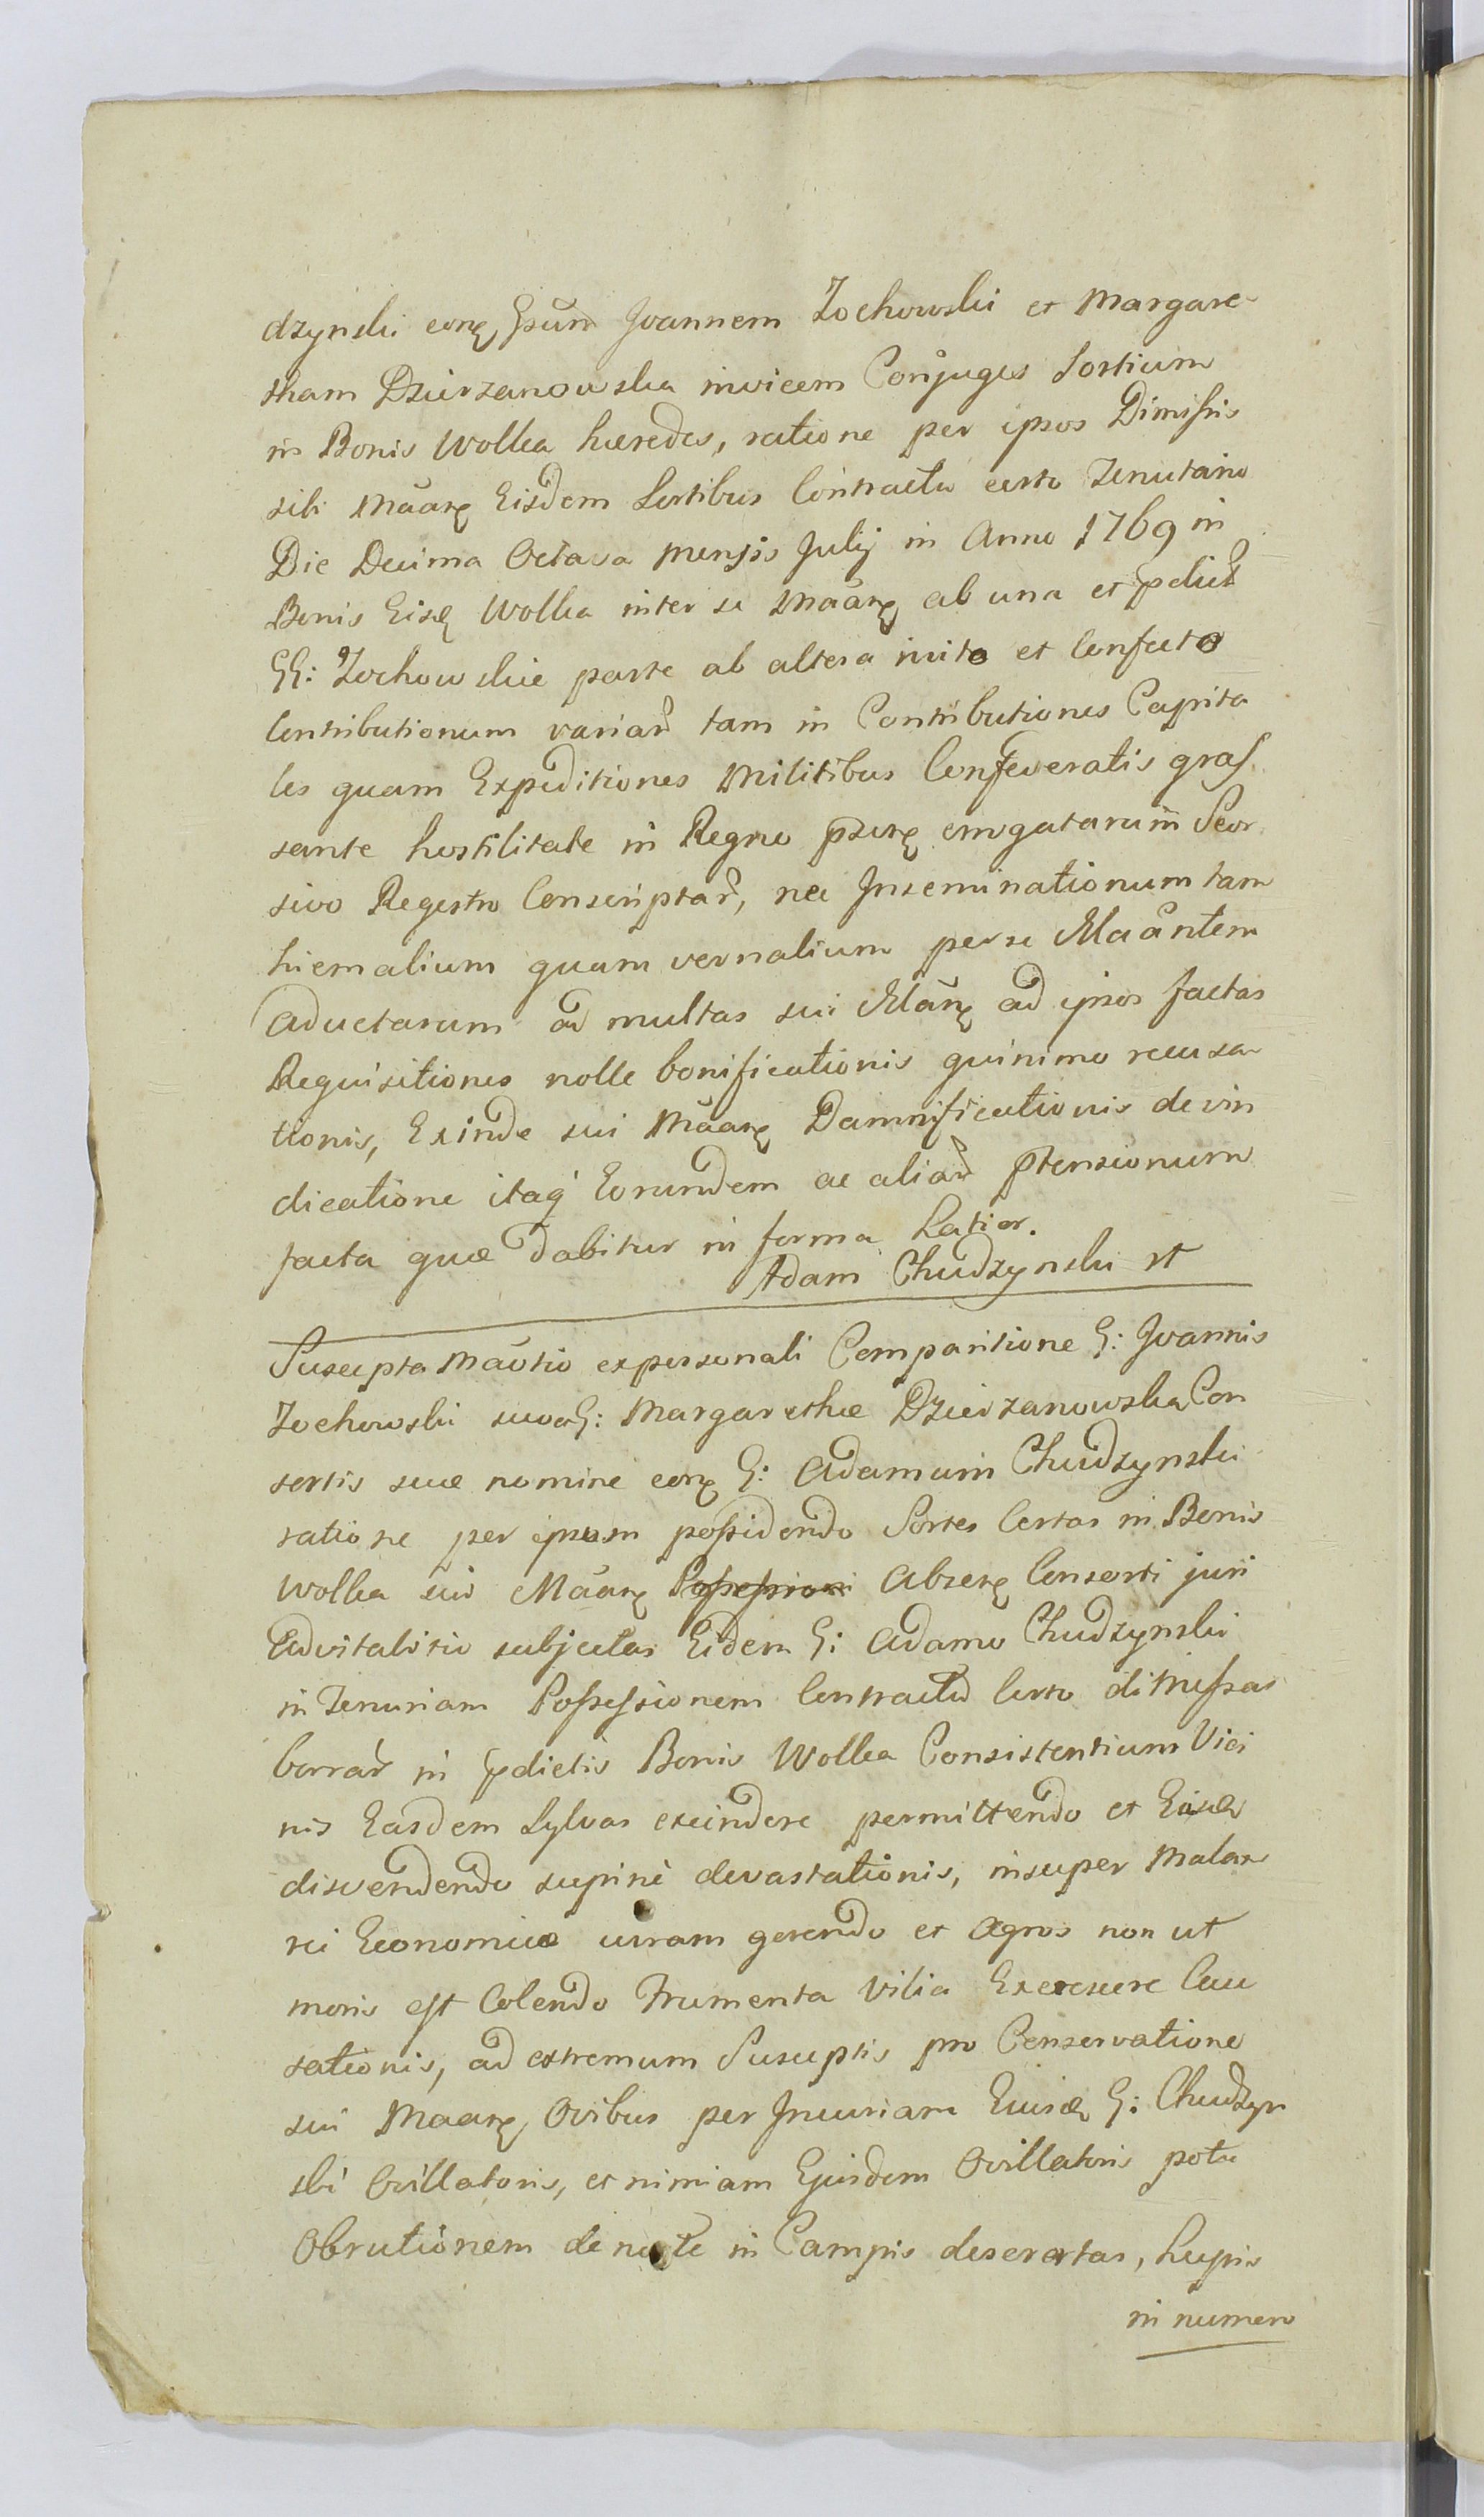 dzynski conq Gsum Joannem Zochowski et Margare
tham Dzierzanowska invicem Conjuges Sortium
in Bonis Wolka hæredes, ratione per ipsos Dimissis
sibi Maanq Eisdem Sortibus Contractu certo Tenutario
Die Decima Octava mensis Julij in Anno 1769 in
Bonis Eisd Wolka inter se Maanq ab una et pdict
GG: Zochowskie parte ab altera inito et Confecto
Contributionum variar tam in Contributiones Capita
les quam Expeditiones Militibus Confeveratis gras
sante hostilitate in Regno psenq erogatarum Seor
sivo Regestro Conscriptar, nec Inseminationum tam
hiemalium quam vernalium per se Maantem
aductarum ad multas sui Manq ad ipsos factas
Requisitiones nolle bonificationis quinimo recusa
tionis, Exinde sui Maanq Damnificationis devin
dicatione itaq Eorundem ac aliar ptensionum
facta quæ dabitur in forma Latior.
Adam Chudzynski st
Suscepta Maotio ex personali Comparitione G: Joannis
Zochowski suo G: Margarethæ Dzierzanowska Con
sortis suæ nomine conq G: Adamum Chudzynski
ratione per ipsum possidendo Sortes Certas in Bonis
Wolka sui Maanq Possessioni Absenq Consorti juri
Advitalitio subjectas Eidem G: Adamo Chudzynski
in Tenuriam Possessionem Contractu Certo dimissas
borrar in pdictis Bonis Wolka Consistentium Vici
nis Easdem Sylvas excindere permittendo et Easd
disvendendo supine devastationis, insuper Malam
rei Economicæ curam gerendo et Agros non ut
moris est Colendo Frumenta Vilia Excrescere Cau
sationis, ad extremum Susceptis pro Conservatione
sui Maanq Ovibus per Incuriam Eiusd G: Chudzyn
ski Ovillatoris, et nimiam Ejusdem Ovillatoris potu
Obrutionem de nocte in Campis desertas, Lupis
in numero